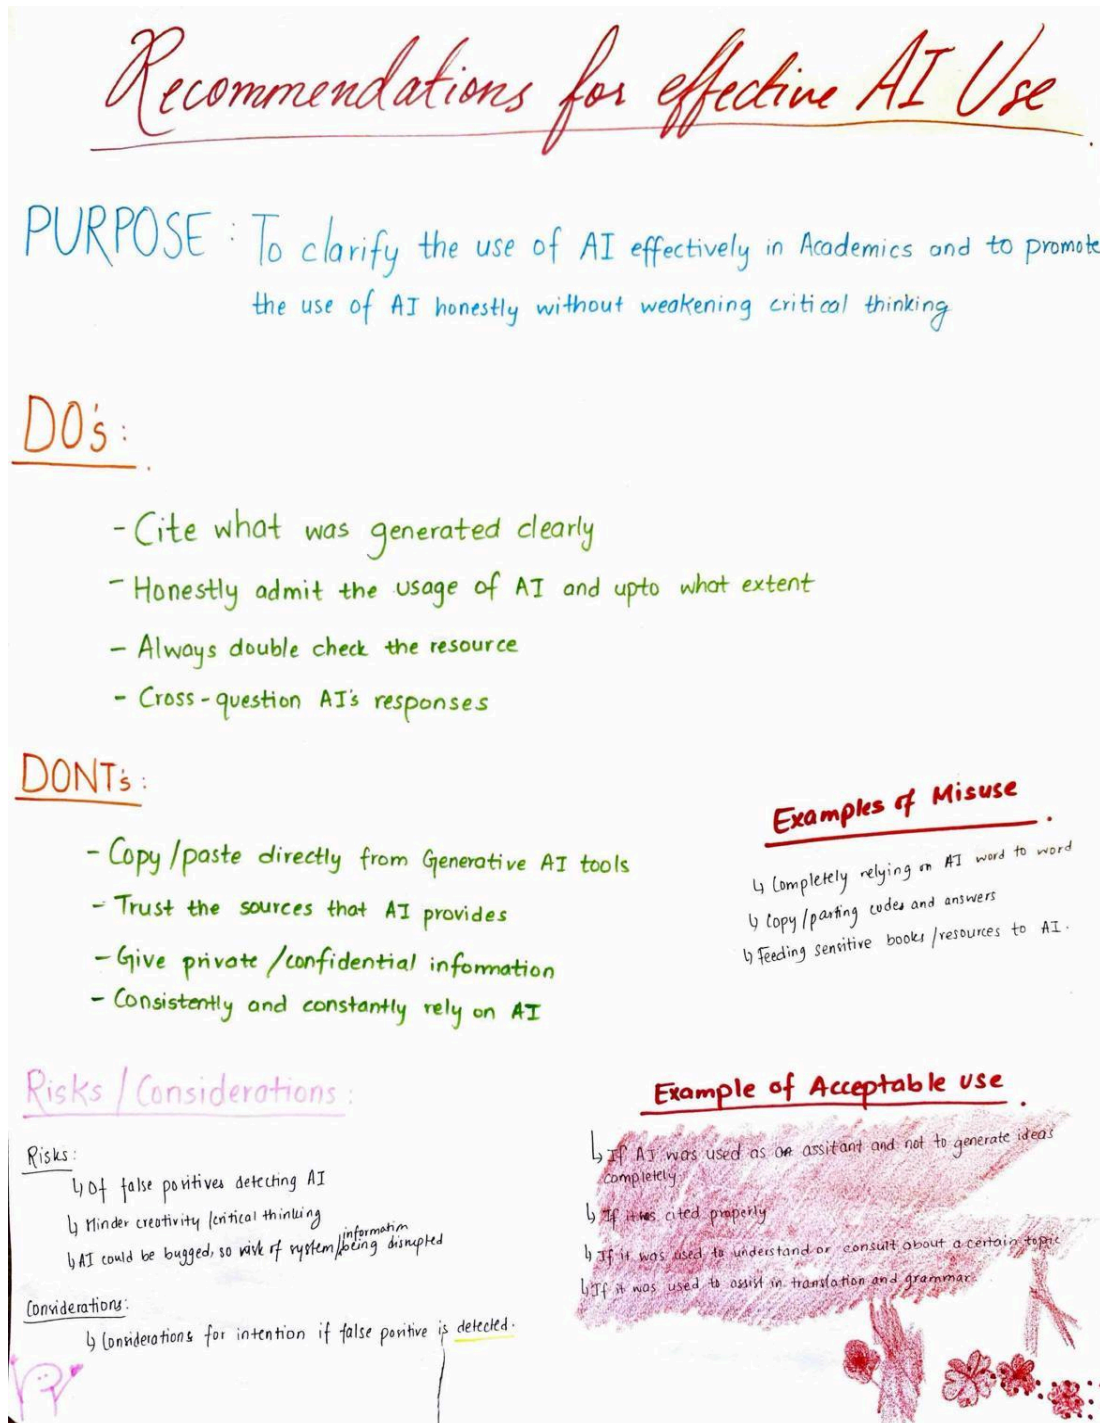 Recommendations for effective AI Use
PURPOSE : To clarify the use of AI effectively in Academics and to promote
the use of AI honestly without weakening critical thinking
DO's :
- Cite what was generated clearly
- Honestly admit the usage of AI and upto what extent
- Always double check the resource
- Cross-question AI's responses
DONT's :
- Copy/paste directly from Generative AI tools
- Trust the sources that AI provides
- Give private/confidential information
- Consistently and constantly rely on AI
Examples of Misuse
↳ Completely relying on AI word to word
↳ Copy/pasting codes and answers
↳ Feeding sensitive books/resources to AI.
Risks/Considerations :
Risks:
↳ Of false positives detecting AI
↳ Hinder creativity/critical thinking
↳ AI could be bugged, so risk of system/information being disrupted
Considerations:
↳ Considerations for intention if false positive is detected.
Example of Acceptable use
↳ If AI was used as an assitant and not to generate ideas
completely
↳ If it was cited properly
↳ If it was used to understand or consult about a certain topic
↳ If it was used to assist in translation and grammar